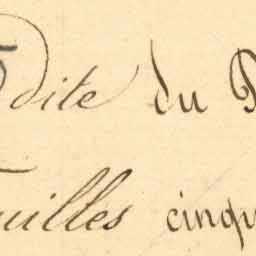 dite du
uilles cinqu